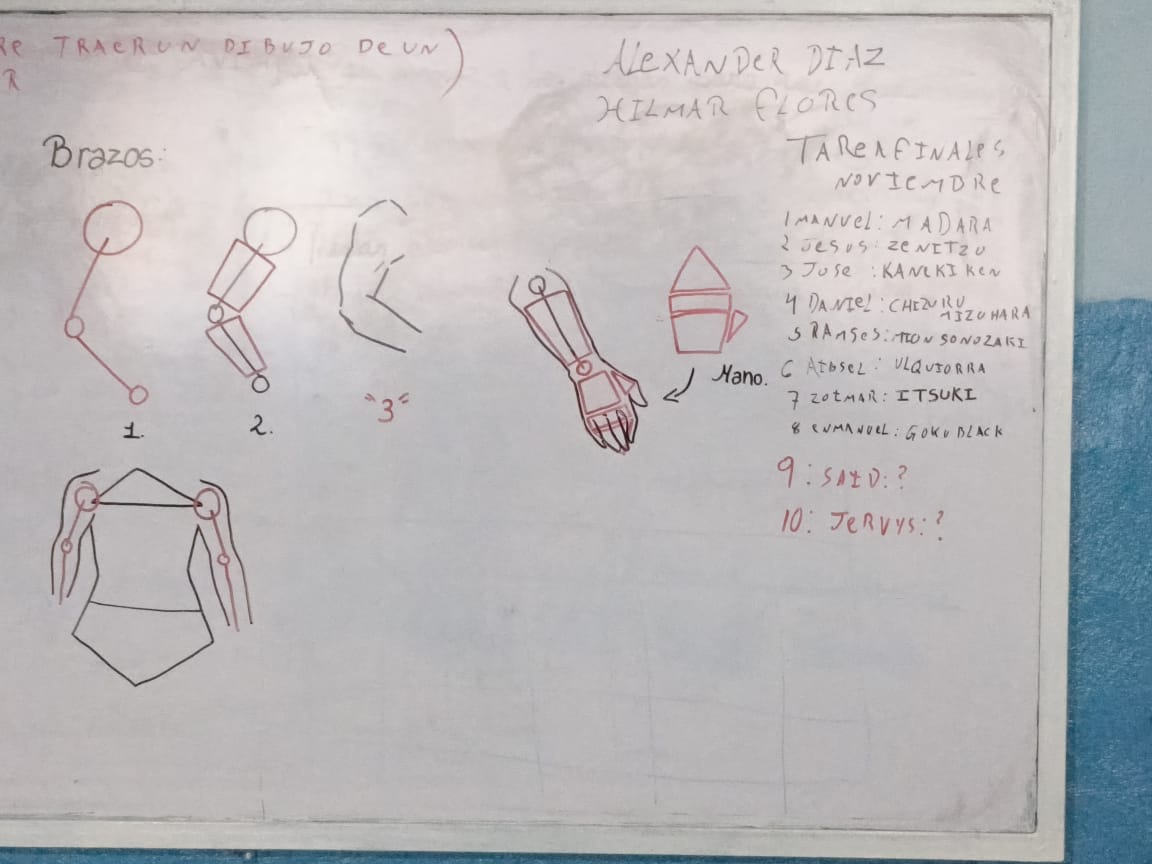 RE TRAER UN DIBUJO DE UN)
R
ALEXANDER DIAZ
HILMAR FLORES
Brazos:
1.
2.
"3"
Mano.
TAREA FINALES
NOVIEMBRE
1 MANUEL: MADARA
2 JESUS: ZENITZU
3 JOSE : KANEKI KEN
4 DANIEL: CHIZURU
MIZUHARA
5 RAMSES: MION SONOZAKI
6 : ULQUIORRA
7 ZOEMAR: ITSUKI
8 EMMANUEL: GOKU BLACK
9: SAID: ?
10: JERVYS: ?